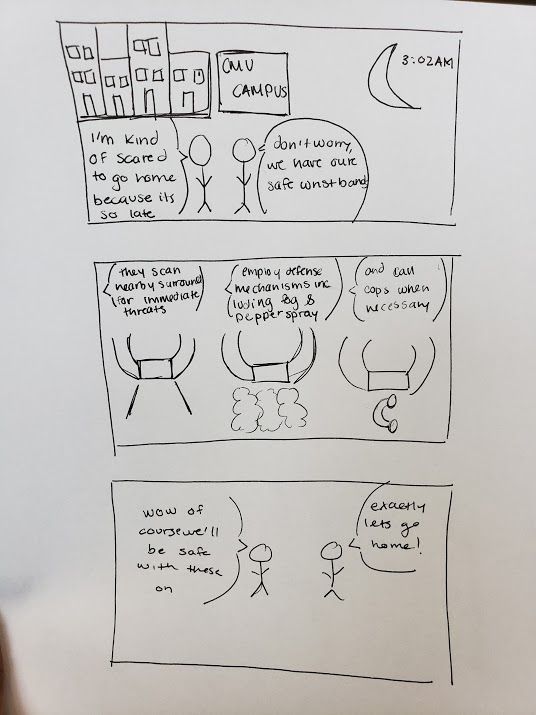 CMU
CAMPUS
3:02AM
I'm kind
of scared
to go home
because its
so late
don't worry,
we have our
safe wristband
they scan
nearby surround
for immediate
threats
employ defense
mechanisms inc
luding fog &
pepper spray
and call
cops when
necessary
wow of
course we'll
be safe
with these
on
exactly
lets go
home!